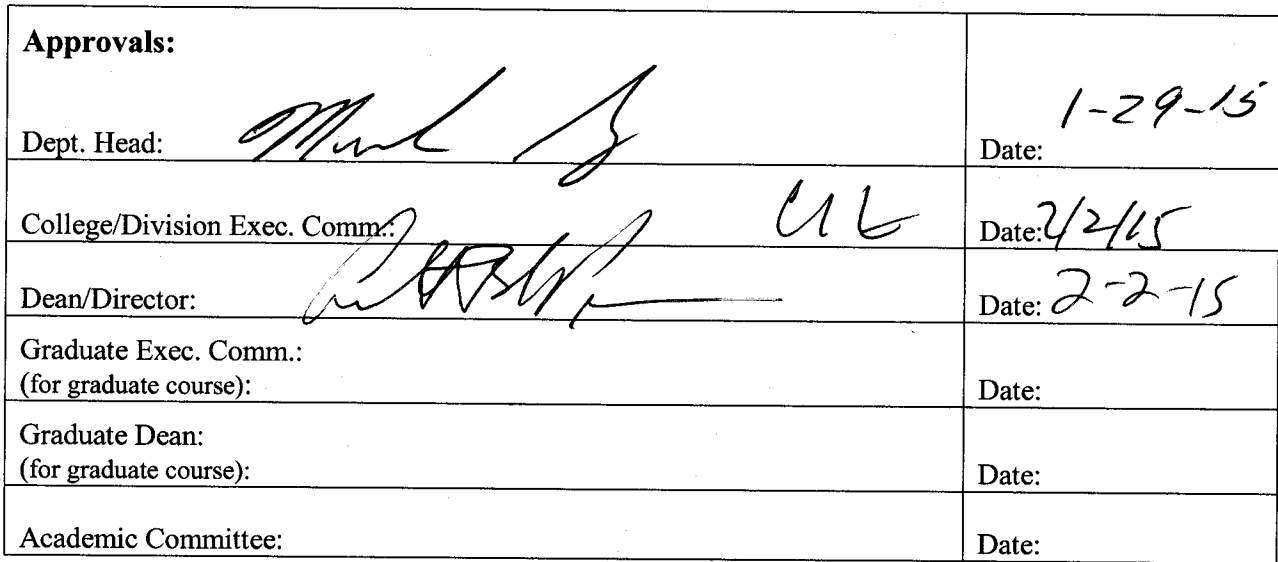 Approvals:
Dept. Head: Date: 1-29-15
College/Division Exec. Comm.: Date: 2/2/15
Dean/Director: Date: 2-2-15
Graduate Exec. Comm.:
(for graduate course): Date:
Graduate Dean:
(for graduate course): Date:
Academic Committee: Date: